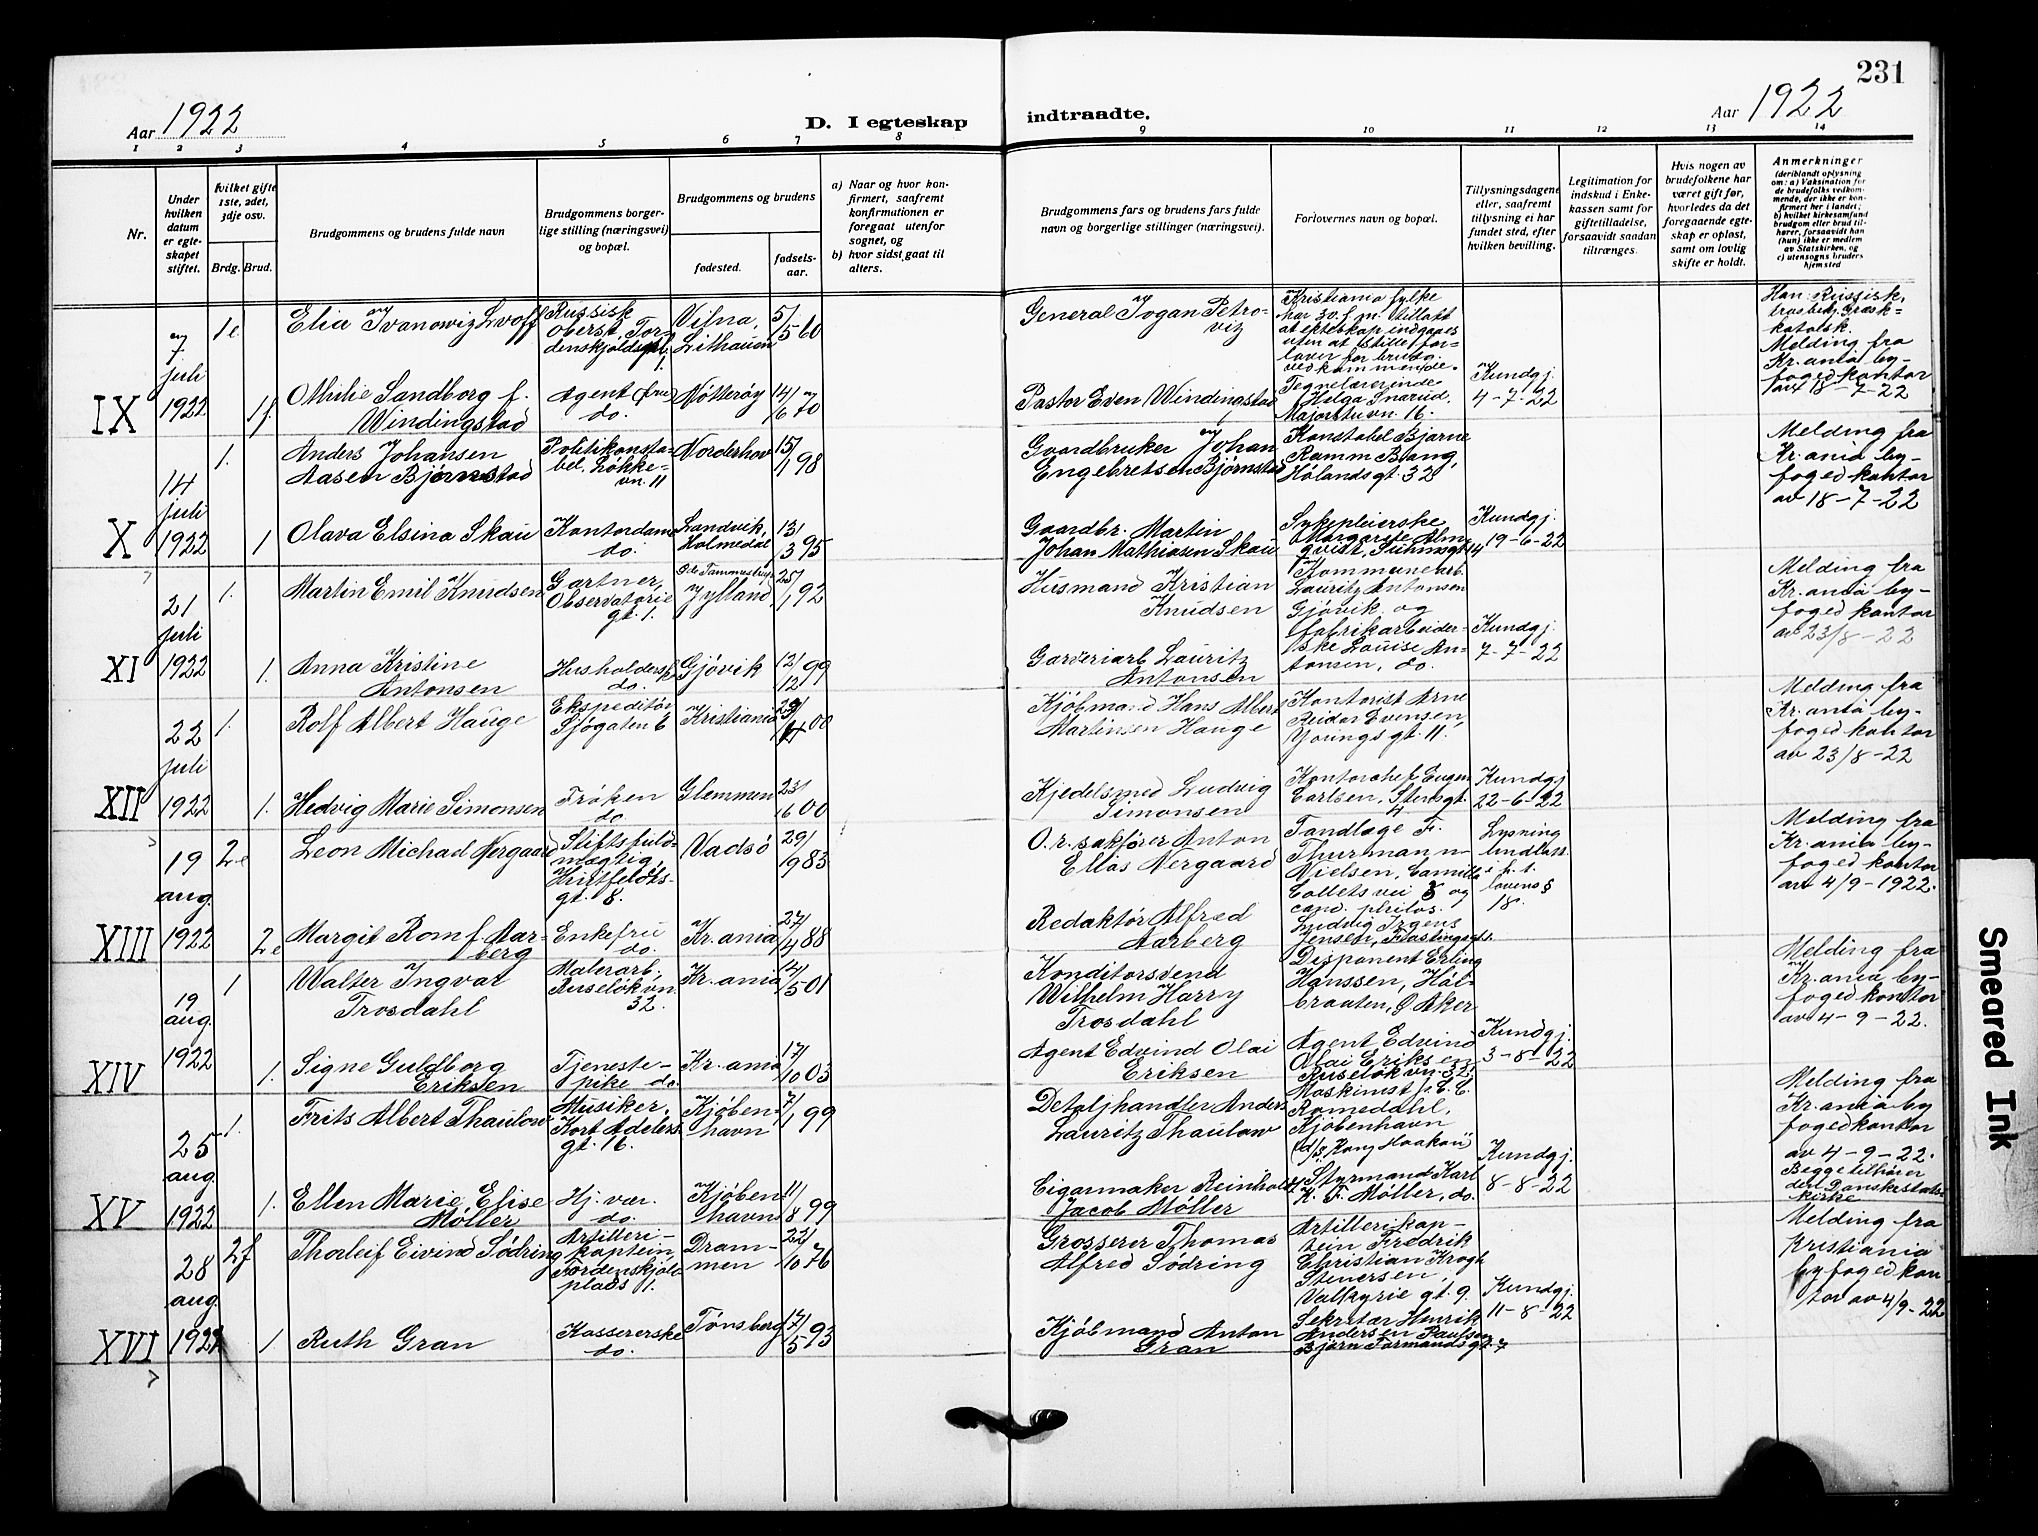 231
Aar 1922
D. I egteskap indtraadte.
Aar 1922
1 2 3 4 5 6 7 8 9 10 11 12 13 14
Nr.
Under hvilken datum er egteskapet stiftet.
hvilket gifte 1ste, 2det, 3dje osv.
Brdg. Brud.
Brudgommens og brudens fulde navn
Brudgommens borgerlige stilling (næringsvei) og bopæl.
Brudgommens og brudens
fødested.
fødselsaar.
a) Naar og hvor konfirmert, saafremt konfirmationen er foregaat utenfor sognet, og
b) hvor sidst gaat til alters.
Brudgommens fars og brudens fars fulde navn og borgerlige stillinger (næringsvei).
Forlovernes navn og bopæl.
Tillysningsdagene eller, saafremt tillysning ei har fundet sted, efter hvilken bevilling.
Legitimation for indskud i Enkekassen samt for giftetilladelse, forsaavidt saadan tiltrænges.
Hvis nogen av brudefolkene har været gift før, hvorledes da det foregaaende egteskap er opløst, samt om lovlig skifte er holdt.
Anmerkninger
(deriblandt oplysning om: a) Vaksination for de brudefolks vedkommende, der ikke er konfirmert her i landet; b) hvilket kirkesamfund brudgom eller brud tilhører, forsaavidt han (hun) ikke er medlem av Statskirken, og c) utensogns bruders hjemsted
IX
7 juli 1922
1e
Elia Ivanowiz Lvoff
Russisk oberst Tordenskjoldspl. 1.
Vilna, Lithauen
5/5 60
General Jogan Petroviz
Kristiania fylke har 30. f. m. tillatt at ekteskap indgaaes uten at stille forlover for brudg. vedkommende.
Han: Russisk, trosbekj. Græsk-katolsk.
Melding fra Kr.ania byfogedkontor av 18-7-22
1f.
Othilie Sandborg f. Windingstad
Agent (frue) do.
Nøtterøy
14/6 70
Pastor Even Windingstad
Tegnelærerinde Helga Snarud, Majorstuvn. 16.
Kundgj. 4-7-22
X
14 juli 1922
1.
Anders Johansen Aasen Bjørnstad
Politikonstabel, Løkkevn. 11
Norderhov
15/1 98
Gaardbruker Johan Engebretsen Bjørnstad
Konstabel Bjarne Ramm Bang, Hølandsgt. 32
Melding fra Kr.ania byfogedkontor av 18-7-22
1
Olava Elsina Skau
Kontordame do.
Landvik, Holmedal
13/3 95
Gaardbr. Martin Johan Mathiasen Skau
Sykepleierske Margarete Almqvist, Suhmsgt. 14
Kundgj. 19-6-22
XI
21 juli 1922
1.
Martin Emil Knudsen
Gartner, Observatoriegt. 1.
Jylland
25/1 92
Husmand Kristian Knudsen
Kommunearb. Lauritz Antonsen Gjøvik og fabrikarbeiderske Louise Antonsen, do.
Melding fra Kr.ania byfogedkontor av 23/8-22
1.
Anna Kristine Antonsen
Husholdersk do.
Gjøvik
12/12 99
Garveriarb. Lauritz Antonsen
Kundgj. 7-7-22
XII
22 juli 1922
1.
Rolf Albert Hauge
Ekspeditør Sjøgaten 6
Kristiania
00
Kjøbmand Hans Albert Martinsen Hauge
Kontorist Arne Reidar Evensen, Youngsgt. 11.
Melding fra Kr.ania byfogedkontor av 23/8-22
1.
Hedvig Marie Simonsen
Frøken do.
Glemmen
23/6 00
Kjedelsmed Ludvig Simonsen
Kontorchef Eugen Carlsen, Stensgt. 4
Kundgj. 22-6-22
XIII
19 aug. 1922
2e
Leon Michael Nergaard
Stiftsfuldmægtig, Huitfeldtsgt. 8.
Vadsø
29/1 983
O. r. sakfører Anton Ellas Nergaard
Tandlæge F. Thurmann-Nielsen, Camilla Colletsvei 3 og cand. philos. Ludvig Irgens Jensen,
Lysning undlatt i h. t. lovens § 18.
Melding fra Kr.ania byfogedkontor av 4/9-1922.
2e
Margit Rom f. Aarberg
Enkefru do.
Kr.ania
27/4 88
Redaktør Alfred Aarberg
XIV
19 aug. 1922
1
Walter Ingvar Trosdahl
Malerarb. Ruseløkvn. 32.
Kr.ania
12/5 01
Konditorsvend Wilhelm Harry Trosdahl
Disponent Erling Hanssen, Holbraaten, Ø. Aker
Melding fra Kr.ania byfogedkontor av 4-9-22.
1.
Signe Guldborg Eriksen
Tjenestepike do.
Kr.ania
17/10 03
Agent Edvind Olai Eriksen
Agent Edvind Olai Eriksen Ruseløkvn. 32.
Kundgj. 3-8-22
XV
25 aug. 1922
1.
Frits Albert Thaulow
Musiker, Kort Adelersgt. 16.
Kjøbenhavn
7/1 99
Detaljhandler Anders Lauritz Thaulow
Maskinist J. C. C. Romeddhl, Kjøbenhavn (d/s Kong Haakon)
Melding fra Kr.ania byfogedkontor av 4-9-22. Begge tilhører den Danske statskirke
1.
Ellen Marie Elise Møller
Hj. vær. do.
Kjøbenhavn
11/8 99
Cigarmaker Reinholdt Jacob Møller
Styrmand Karl K. F. Møller, do.
Kundgj. 8-8-22
XVI
28 aug. 1922
2f
Thorleif Eivind Sødring
Artillerikaptein Tordenskjolds plads 1.
Drammen
22/10 76
Grosserer Thomas Alfred Sødring
Artillerikaptein Fredrik Christian Krogh Stenersen, Valkyriegt. 9.
Melding fra Kristiania byfogedkontor av 4/9-22
1
Ruth Gran
Kassererske do.
Tønsberg
17/5 93
Kjøbmand Anton Gran
Sekretær Henrik Andersen Paulsen Bjørn Farmandsgt. 7
Kundgj. 11-8-22
Smeared Ink